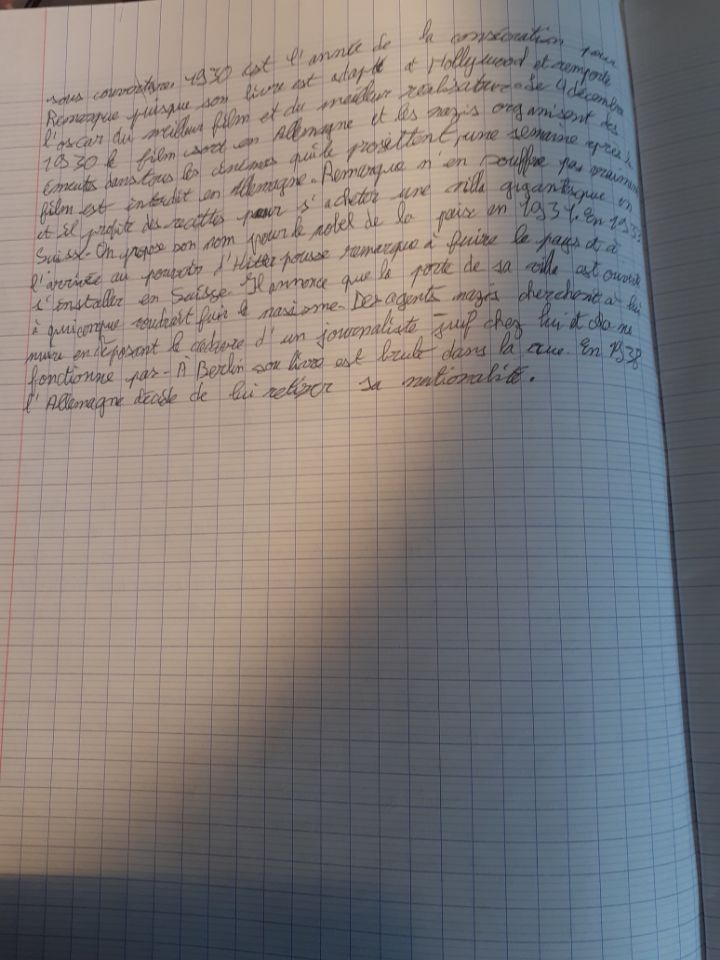 sous couverture. 1930 est l'année de la consécration pour
Remarque puisque son livre est adapté à Hollywood et remporte
l'oscar du meilleur film et du meilleur réalisateur. Le 4 décembre
1930 le film sort en Allemagne et les nazis organisent des
émeutes dans tous les cinémas qui le projettent, une semaine après le
film est interdit en Allemagne. Remarque n'en souffre pas vraiment
et il profite des recettes pour s'acheter une villa gigantesque en
Suisse. On propose son nom pour le nobel de la paix en 1931. En 1933
l'arrivée au pouvoir d'Hitler pousse remarque à fuire le pays et à
s'installer en Suisse. Il annonce que la porte de sa villa est ouverte
à quiconque voudrait fuir le nazisme. Des agents nazis cherchent à lui
nuire en déposant le cadavre d'un journaliste juif chez lui et cla ne
fonctionne pas. À Berlin son livre est brulé dans la rue. En 1938
l'Allemagne décide de lui retirer sa nationalité.